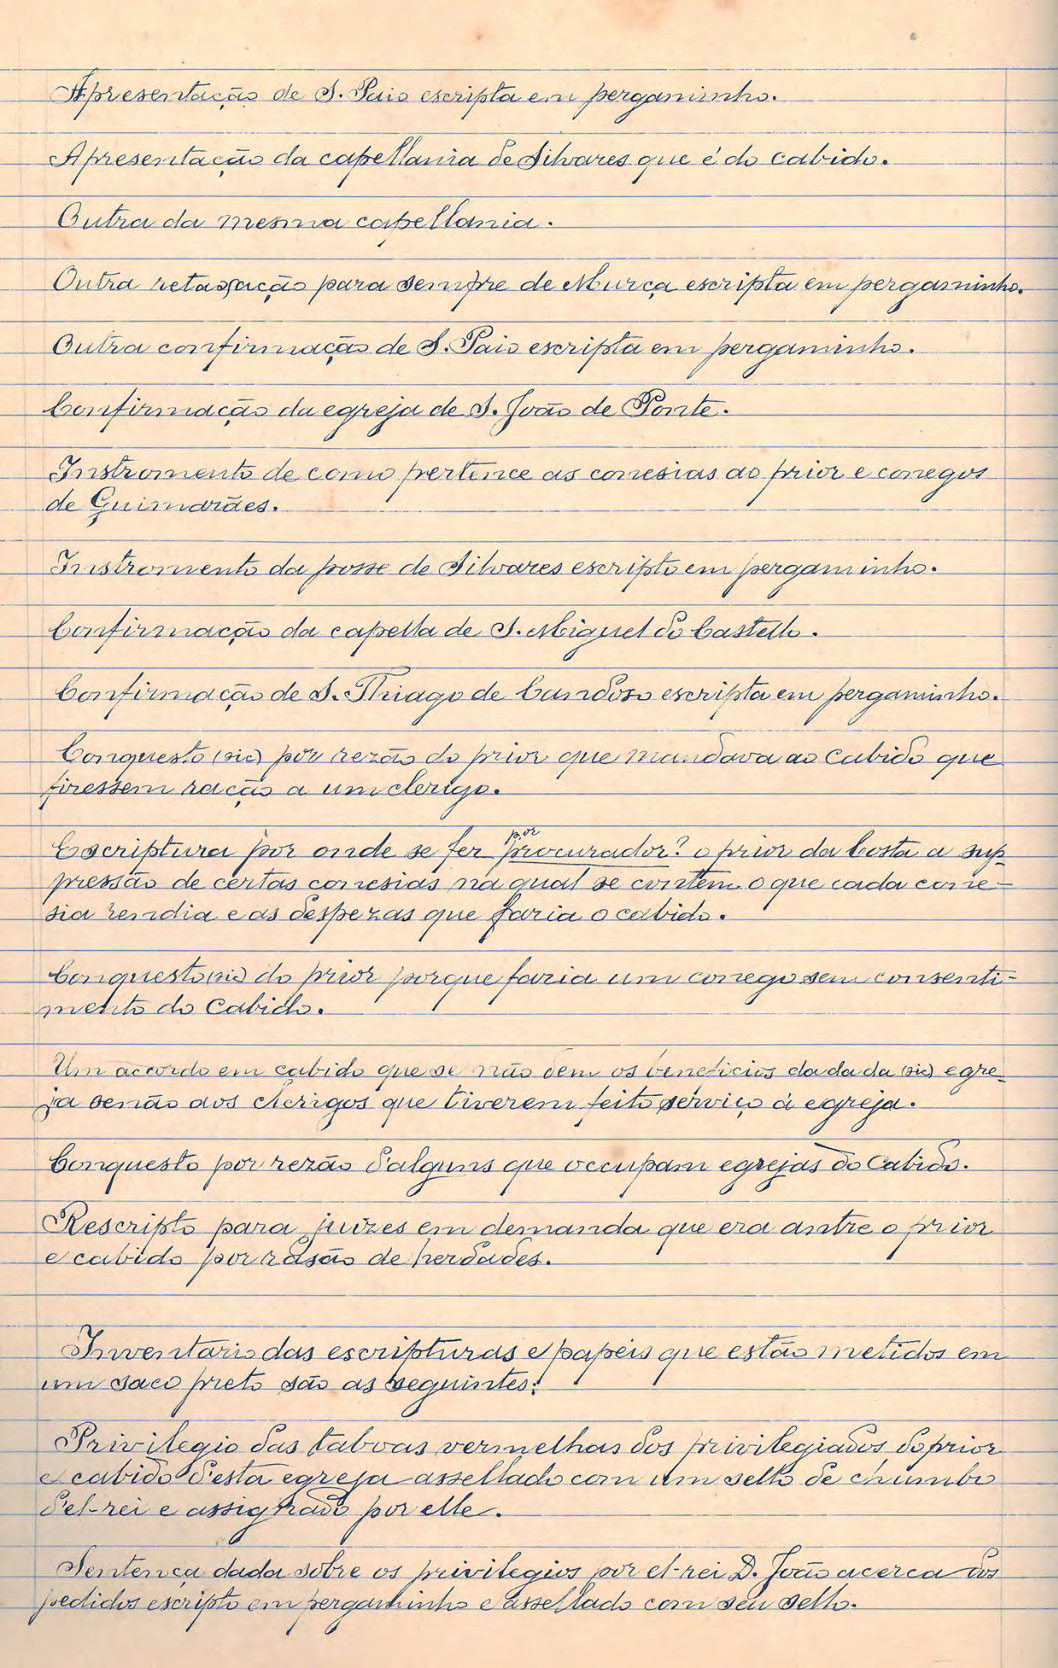 Apresentação de S. Paio escripta em pergaminho.
Apresentação da capellania de Silvares que é do cabido.
Outra da mesma capellania.
Outra retaxação para sempre de Murça escripta em pergaminho.
Outra confirmação de S. Paio escripta em pergaminho.
Confirmação da egreja de S. João de Ponte.
Instromento de como pertence as conesias ao prior e conegos
de Guimarães.
Instromento da posse de Silvares escripto em pergaminho.
Confirmação da capella de S. Miguel do Castello.
Confirmação de S. Thiago de Candoso escripta em pergaminho.
Conquesto (sic) por rezão do prior que mandava ao cabido que
fizessem ração a um clerigo.
Escriptura por onde se fez por procurador? o prior da Costa a sup-
pressão de certas conesias na qual se contem o que cada cone-
sia rendia e as despezas que faria o cabido.
Conquesto (sic) do prior porque faria um conego sem consenti-
mento do cabido.
Um accordo em cabido que se não dem os beneficios da dada (sic) egre-
ja senão aos clerigos que tiverem feito serviço á egreja.
Conquesto por rezão d'alguns que occupam egrejas do cabido.
Rescripto para juizes em demanda que era antre o prior
e cabido por rasão de herdades.
Inventario das escripturas e papeis que estão metidos em
um saco preto são as seguintes:
Privilegio das taboas vermelhas dos privilegiados do prior
e cabido d'esta egreja assellado com um sello de chumbo
d'el-rei e assignado por elle.
Sentença dada sobre os privilegios por el-rei D. João acerca dos
pedidos escripto em pergaminho e assellado com seu sello.